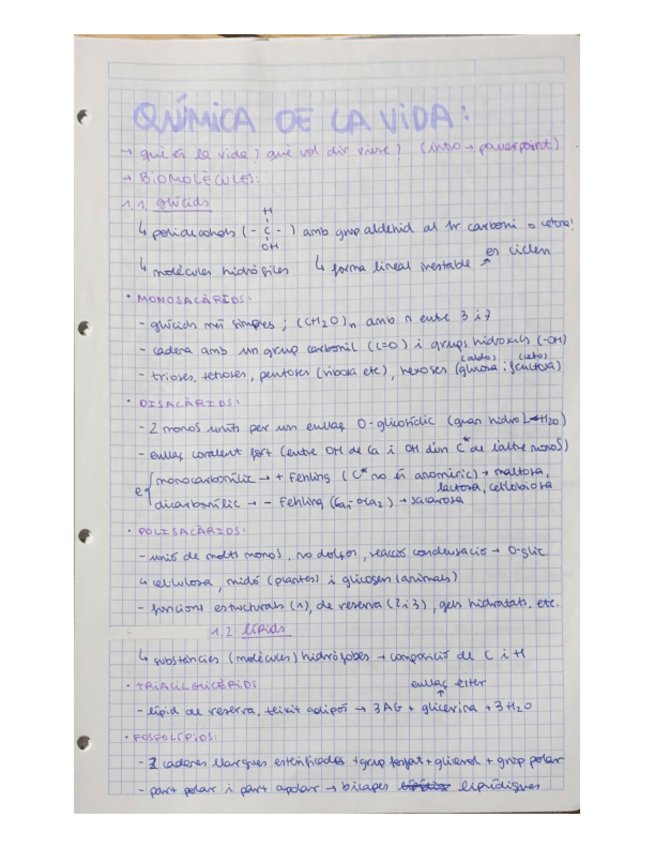 QUÍMICA DE LA VIDA:
→ què és la vida? què vol dir viure? (intro → powerpoint)
→ BIOMOLÈCULES:
1.1 glúcids
H
↳ polialcohols (-C-) amb grup aldehid al 1r carboni o cetona!
OH
↳ molècules hidròfiles ↳ forma lineal inestable ↗ es ciclen
• MONOSACÀRIDS:
- glúcids més simples; (CH2O)n amb n entre 3 i 7
- cadena amb un grup carbonil (C=O) i grups hidroxils (-OH)
(aldo) (ceto)
- trioses, tetroses, pentoses (ribosa etc), hexoses (glucosa i fructosa)
• DISACÀRIDS:
- 2 monos units per un enllaç O-glicosídic (quan hidro H2O)
- enllaç covalent fort (entre OH de Ca i OH d'un C* de l'altre monoS)
monocarbonílic → + Fehling (C* no és anomèric) → maltosa,
lactosa, cel·lobiosa
dicarbonílic → - Fehling → sacarosa
• POLISACÀRIDS:
- unió de molts monos, no dolços, reacció condensació → O-glic
↳ cel·lulosa, midó (plantes) i glicogen (animals)
- funcions estructurals (1), de reserva (2 i 3), gels hidratats, etc.
1.2 lípids
↳ substàncies (molècules) hidròfobes → composició de C i H
• TRIACILGLICÈRIDS
enllaç èster
↑
- lípid de reserva, teixit adipós → 3AG + glicerina + 3H2O
• FOSFOLÍPIDS:
- 2 cadenes llargues esterificades + grup fosfat + glicerol + grup polar
- part polar i part apolar → bicapes lipídiques